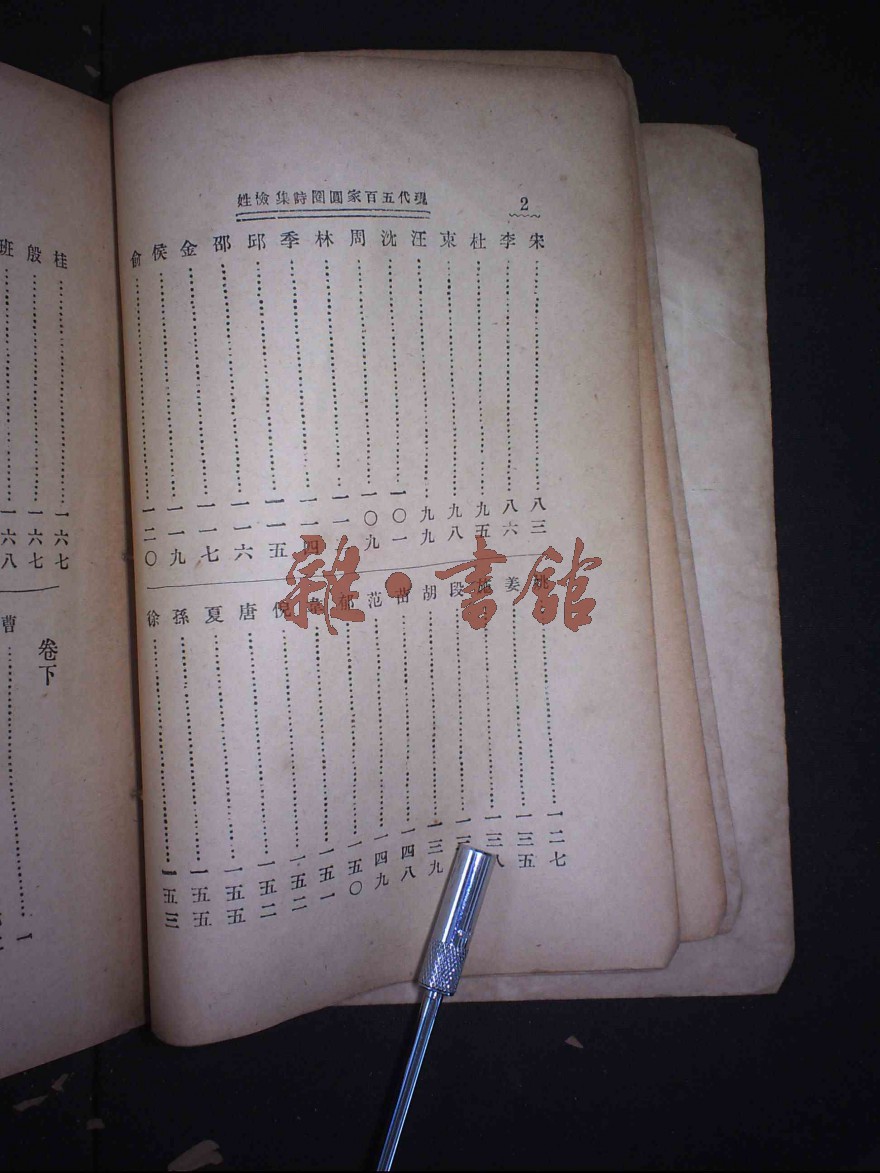 現代五百家圓圈詩集檢姓
2
宋……八三
李……八六
杜……九五
束……九八
汪……九九
沈……一〇一
周……一〇九
林……一一
季……一一四
邱……一一五
邵……一一六
金……一一七
侯……一一九
俞……一二〇
姚……一二七
姜……一三五
施……一三八
段……一
胡……一三九
苗……一四八
范……一四九
郁……一五〇
韋……一五一
倪……一五二
唐……一五二
夏……一五五
孫……一五五
徐……一五三
桂……一六七
殷……一六七
班……一六八
卷下
曹……一
雜·書館